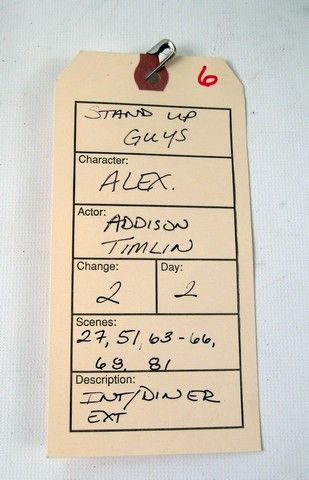 6
STAND UP
GUYS
Character:
ALEX.
Actor:
ADDISON
TIMLIN
Change: Day:
2 2
Scenes:
27, 51, 63-66,
68. 81
Description:
INT/DINER
EXT